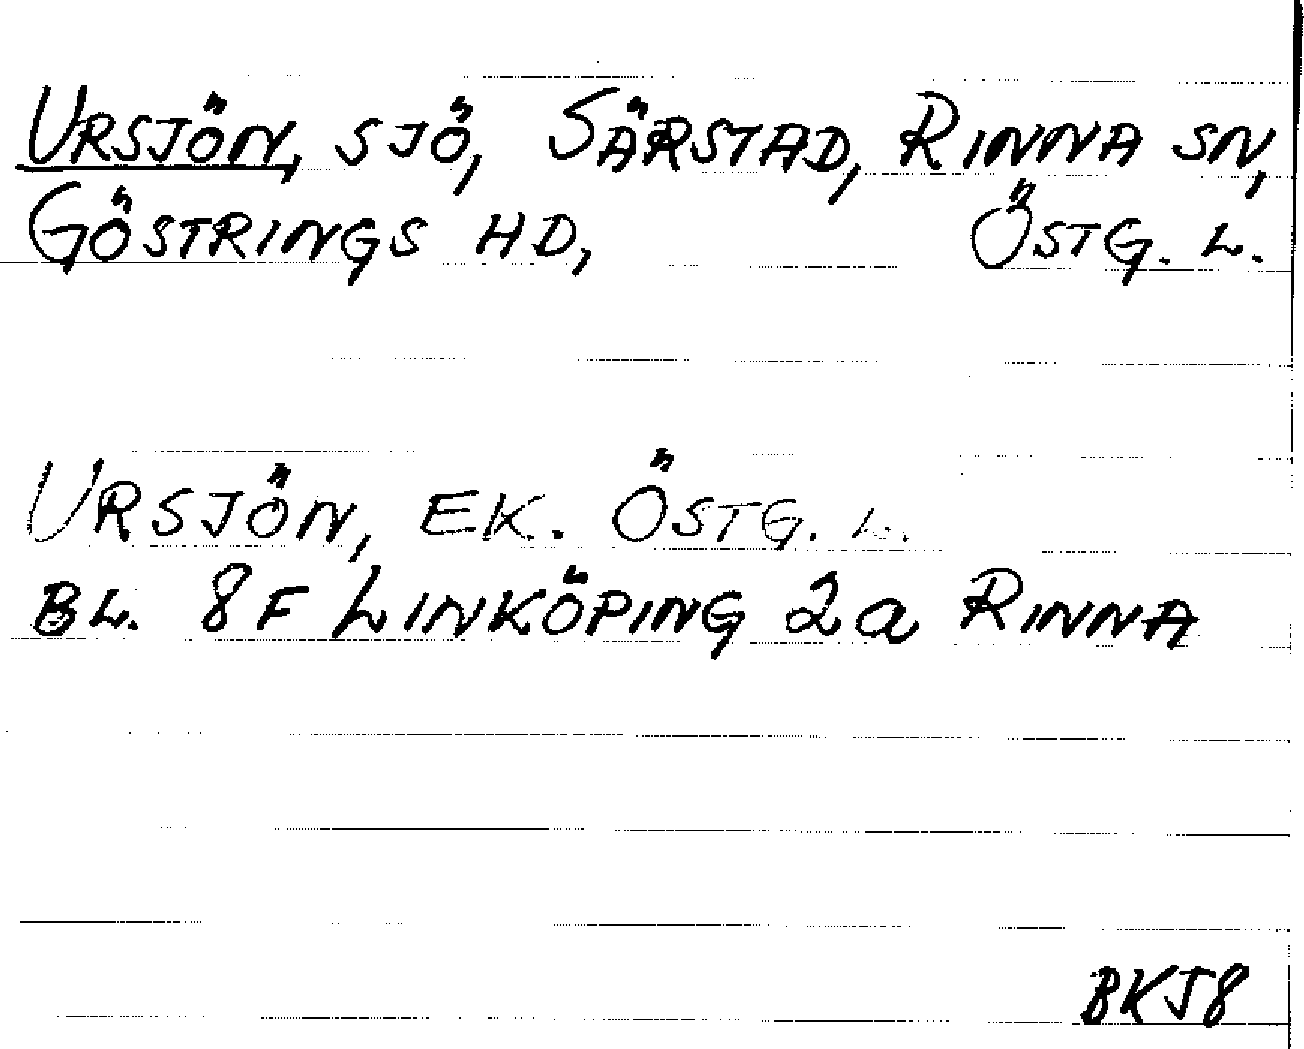 URSJÖN, SJÖ, SÄRSTAD, RINNA SN,
GÖSTRINGS HD, ÖSTG. L.
URSJÖN, EK. ÖSTG. L.
BL. 8F LINKÖPING 2a RINNA
BKJ8